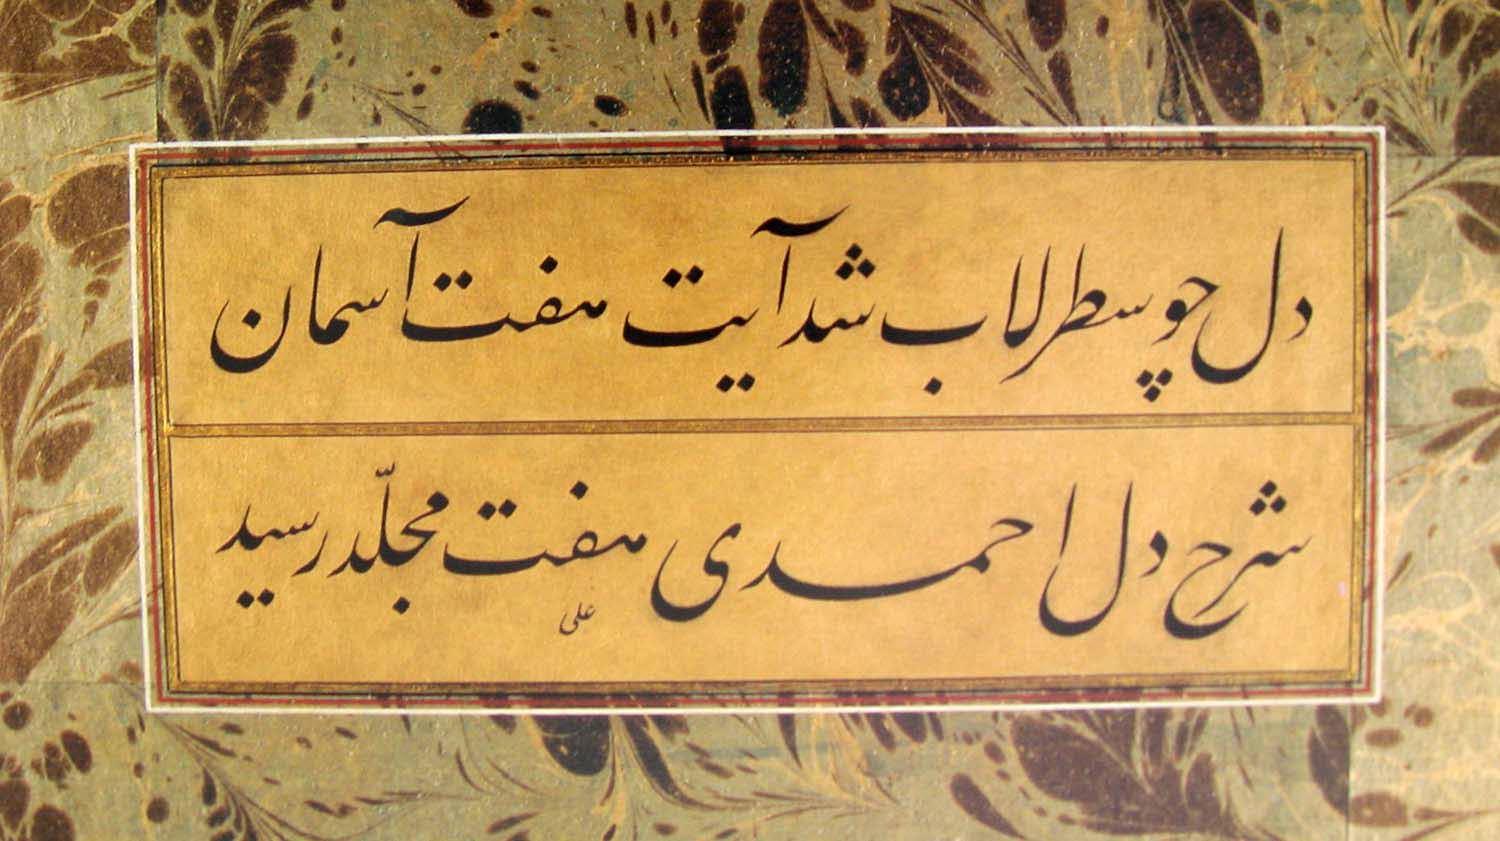 دل چو سطرلاب شد آیت هفت آسمان
شرح دل احمدی هفت مجلّد رسید
علی